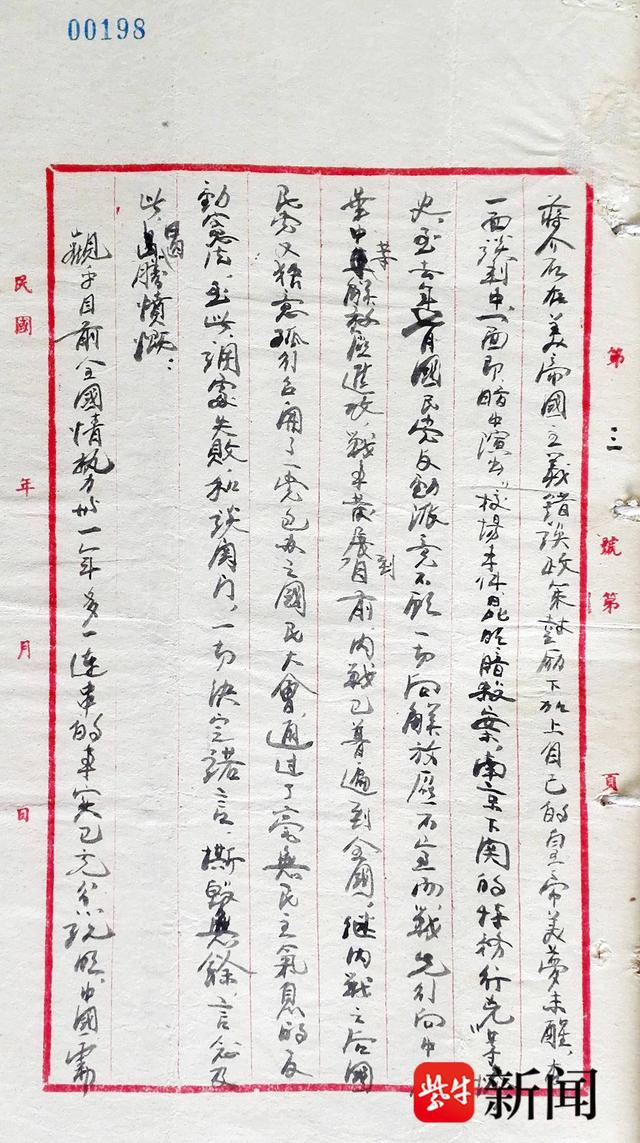 00198
第三號第 頁
蔣介石在美帝國主義錯誤政策鼓勵下加上自己的皇帝美夢未醒,
一面談判中一面即暗中演出"校場 件昆明暗殺案,南京下関的特務行兇"等
史,至去年 月國民党反動派竟不顧一切向解放區 內戰先行向中
華中等解放區進攻,戰 發展到目前內戰已普遍到全國。継內戰之后國
民党又獨意孤行召開了一党包办之國民大會,通過了毫無民主氣息的反
動憲法,至此調處失敗和談関门,一切決定諾言,撕毀無餘,言念及
此 勝憤慨:
觀乎目前全國情勢 一年多一連串的事実已充分說明,中國需
民國 年 月 日
紫牛新闻